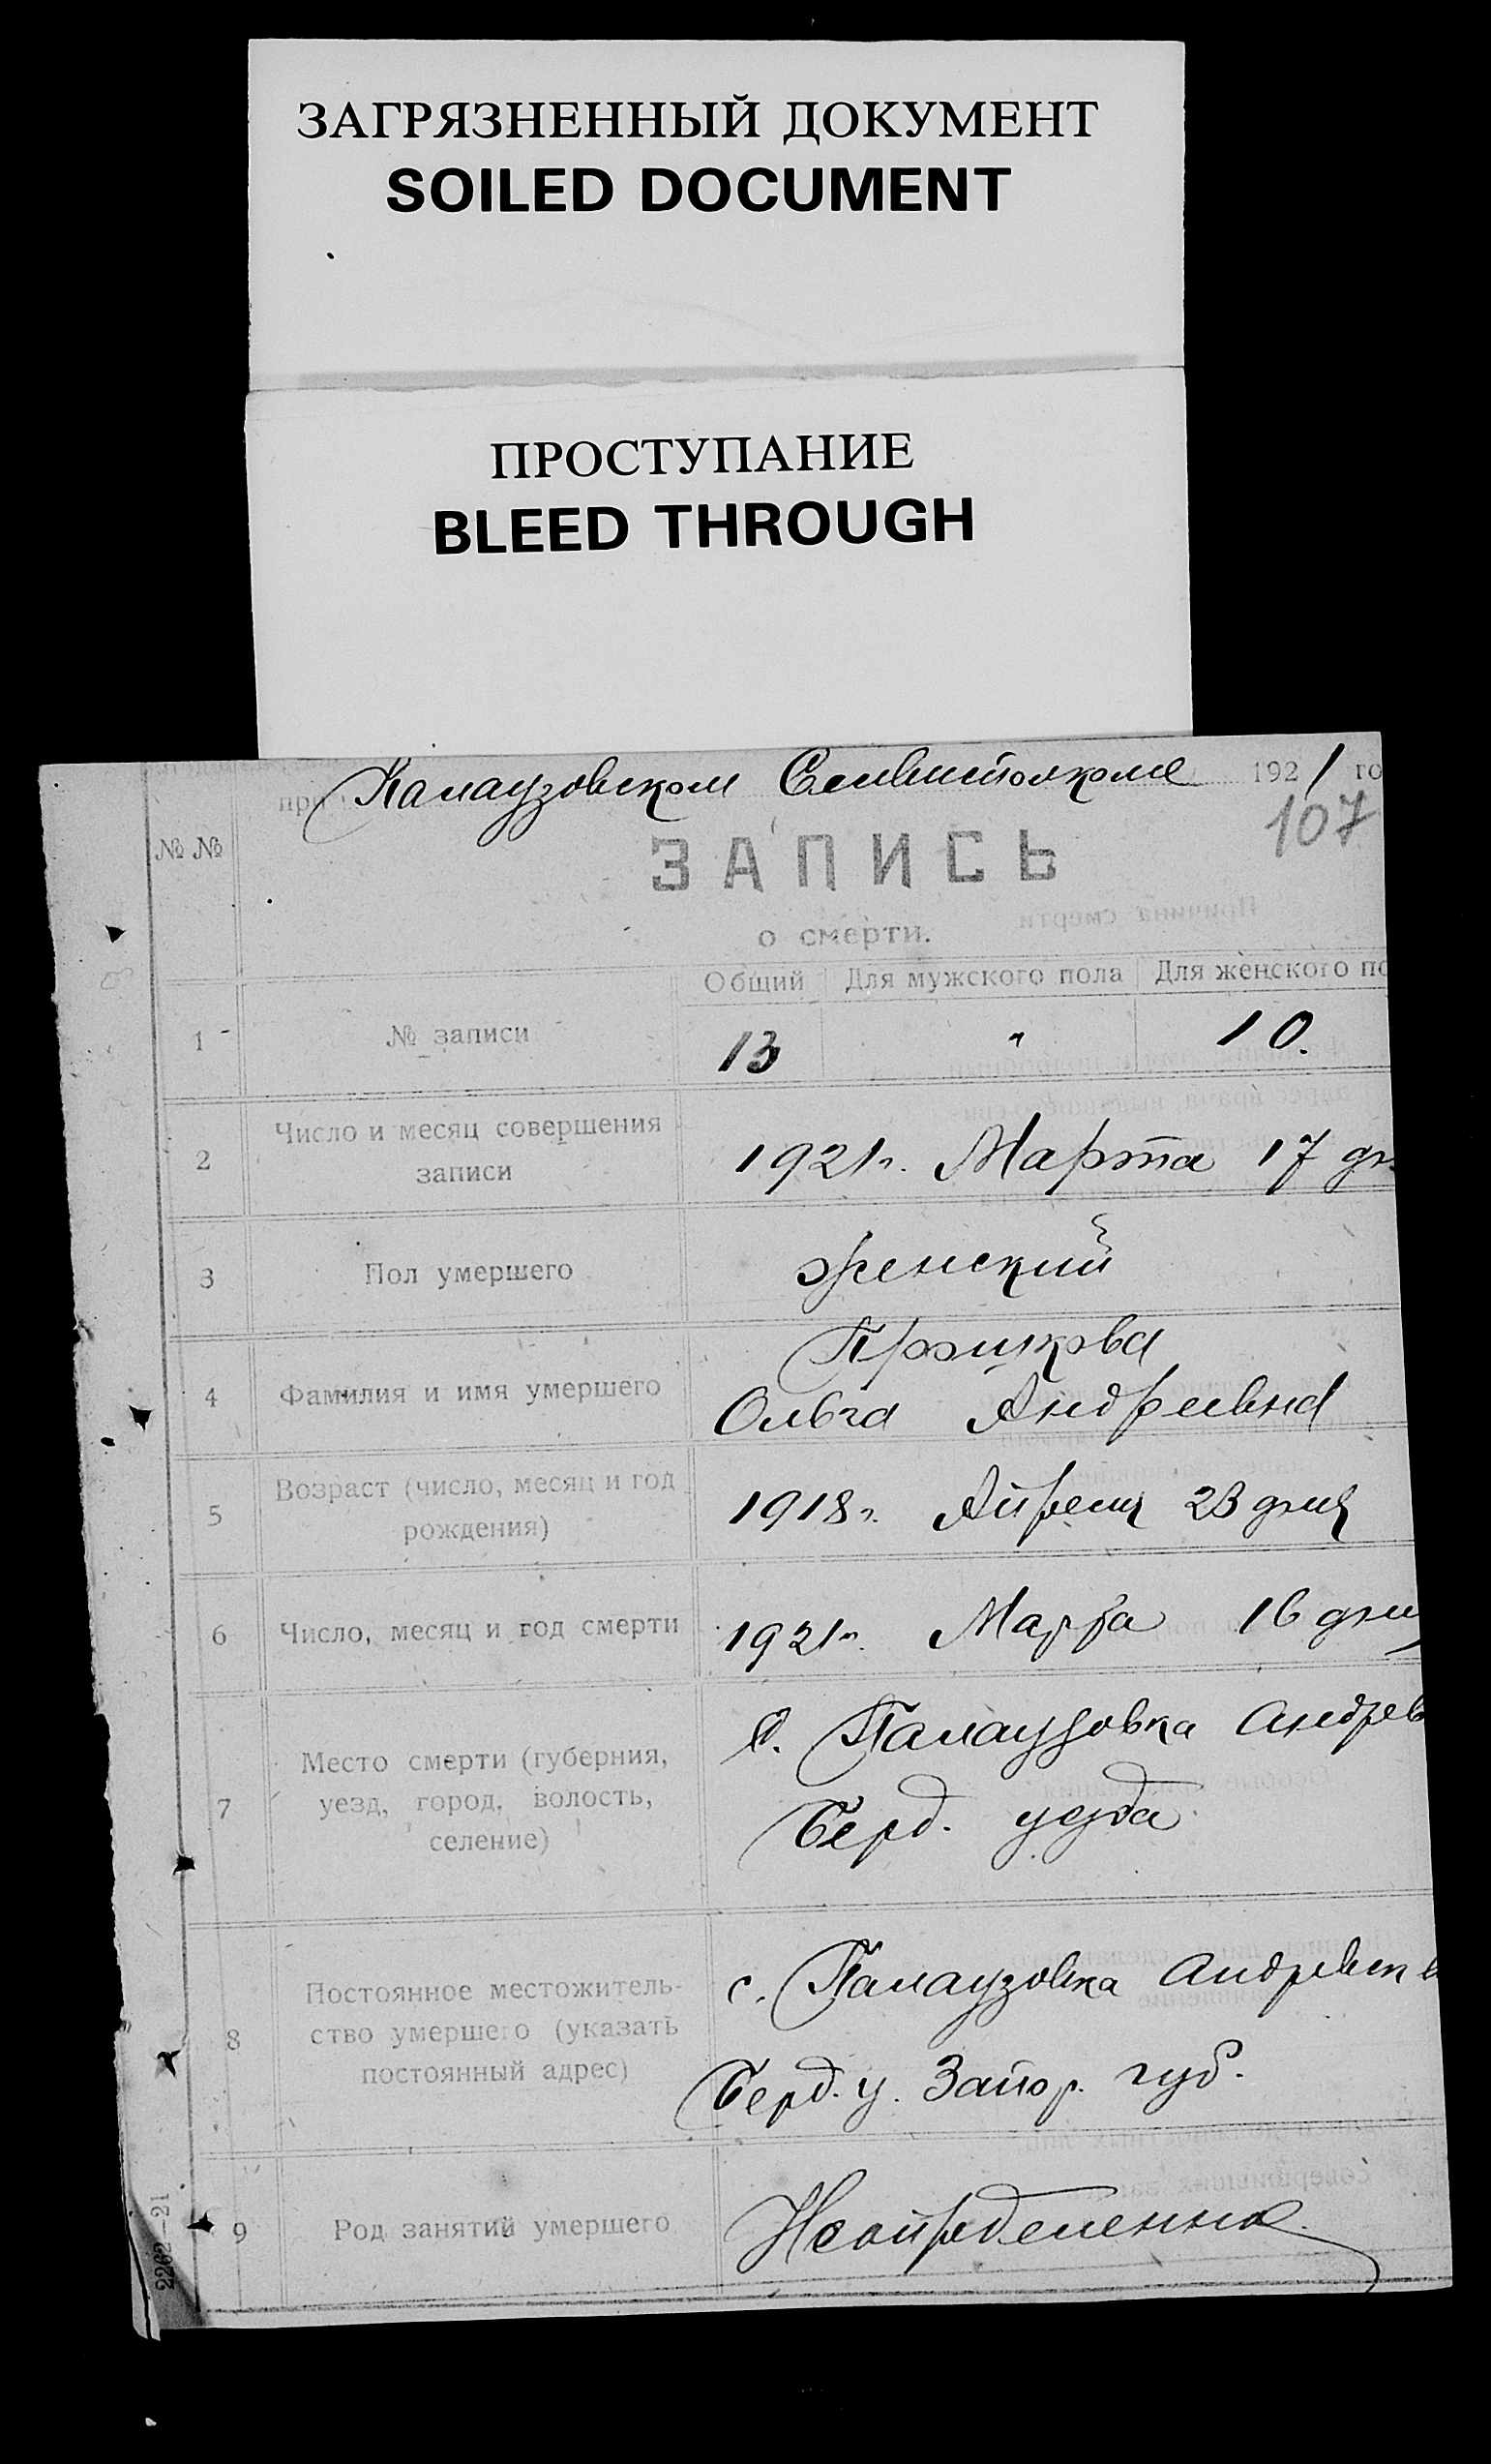 ЗАГРЯЗНЕННЫЙ ДОКУМЕНТ
SOILED DOCUMENT
ПРОСТУПАНИЕ
BLEED THROUGH
при Палаузовском 1921 го
107
№ №
ЗАПИСЬ
о смерти.
Общий Для мужского пола Для женского по
1 № записи 13 " 10.
2 Число и месяц совершения
записи
1921г. Марта 17 дн
3 Пол умершего женский
4 Фамилия и имя умершего
Ольга Андреевна
5 Возраст (число, месяц и год
рождения)
1918г. Апреля 23 дня
6 Число, месяц и год смерти 1921г. Марта 16 дня
7 Место смерти (губерния,
уезд, город, волость,
селение)
с. Палаузовка Андрев
Берд. уезда
8 Постоянное местожитель-
ство умершего (указать
постоянный адрес)
с. Палаузовка
Берд. у. Запор. губ.
9 Род занятий умершего
2262—21